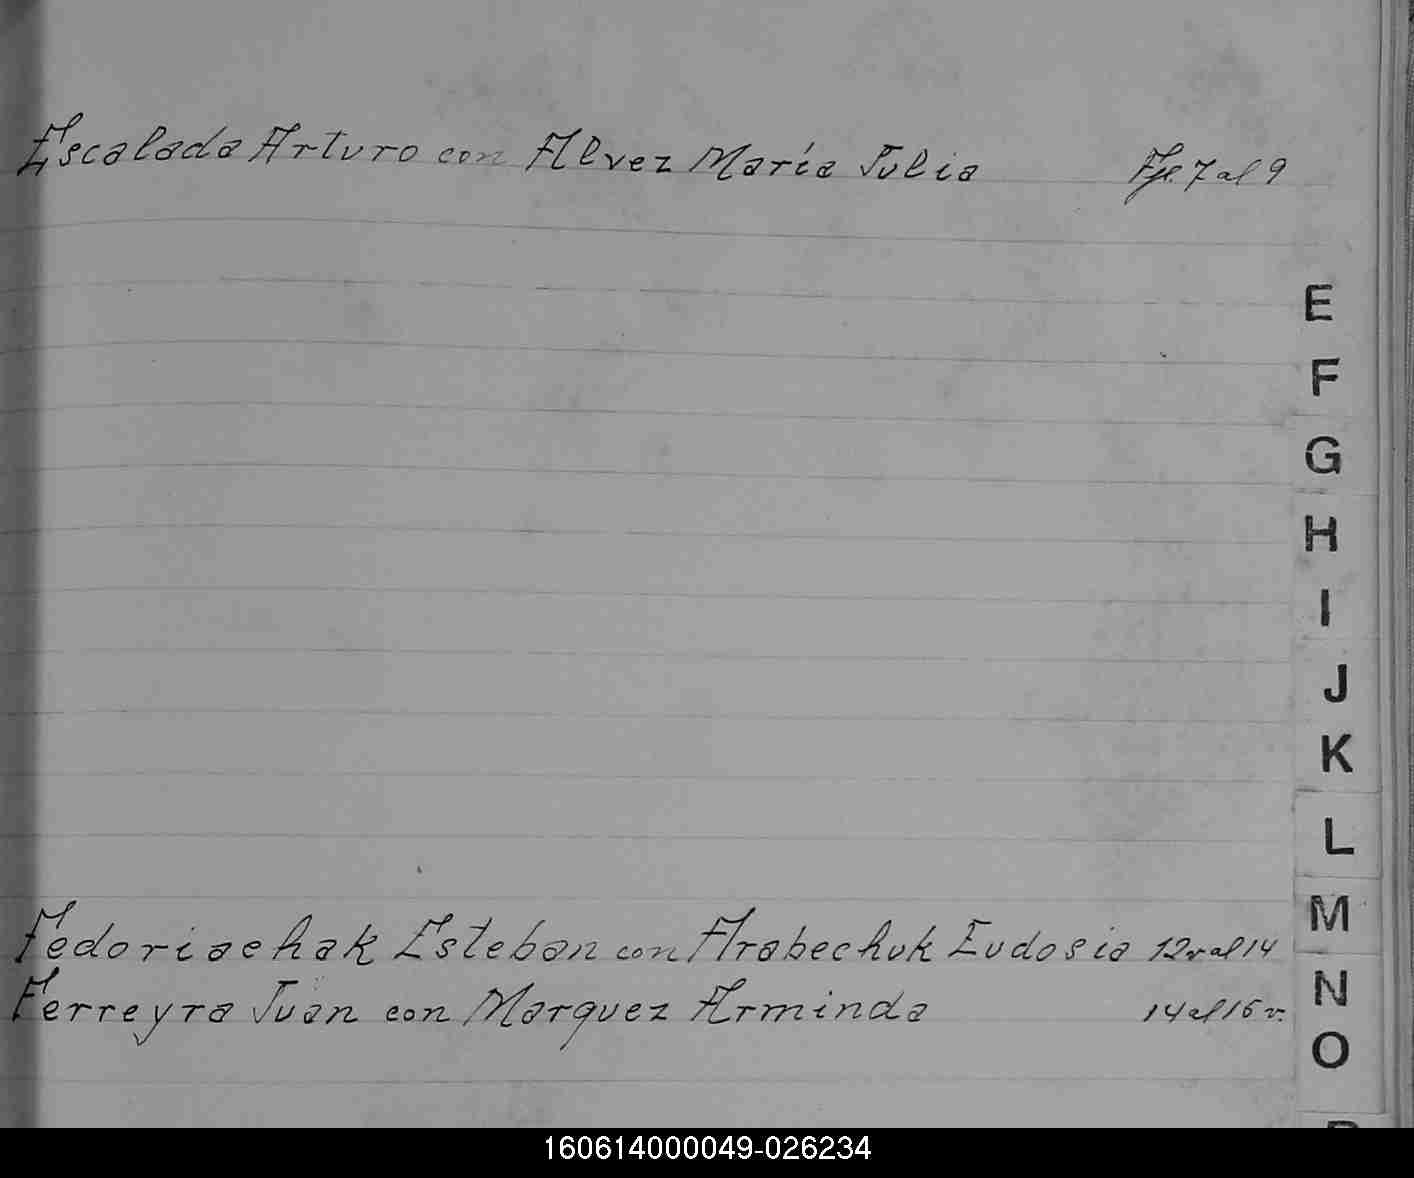 Escalada Arturo con Alvez María Julia Fje. 7 al 9
E
F
G
H
I
J
K
L
Fedoriachak Esteban con Arabechuk Eudosia 12v al 14
M
Ferreyra Juan con Marquez Arminda 14 al 16 v.
N
O
160614000049-026234